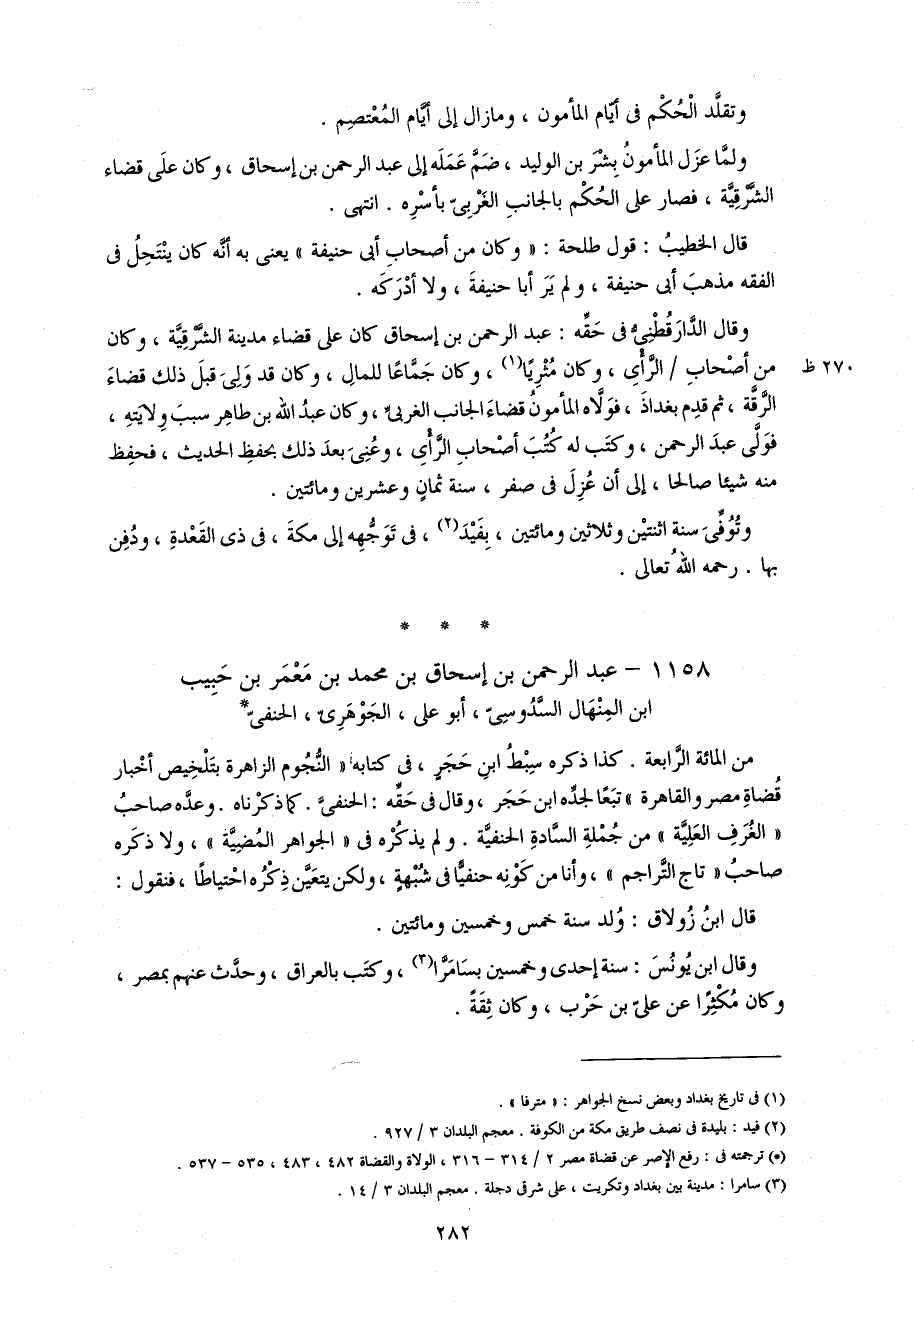 وتقلَّد الْحُكْم فى أيّام المأمون ، ومازال إلى أيَّام المُعْتصِم .
ولمَّا عزَل المأمونُ بِشْرَ بن الوليد ، ضَمَّ عَمَلَه إلى عبد الرحمن بن إسحاق ، وكان علَى قضاء
الشَّرْقِيَّة ، فصار على الحُكْم بالجانبِ الغَرْبِىّ بأسْرِه . انتهى .
قال الخطيبُ : قول طلحة : « وكان من أصحابِ أبى حنيفة » يعنى به أنَّه كان ينْتَحِلُ فى
الفقه مذهبَ أبى حنيفة ، ولم يَرَ أبا حنيفةَ ، ولا أدْرَكَه .
وقال الدَّارَقُطْنِىُّ فى حَقِّه : عبد الرحمن بن إسحاق كان على قضاء مدينة الشَّرْقِيَّة ، وكان
من أصْحابِ / الرَّأْىِ ، وكان مُثْرِيًا(١) ، وكان جَمَّاعًا للمالِ ، وكان قد وَلِىَ قبلَ ذلك قضاءَ
٢٧٠ ظ
الرَّقَّة ، ثم قدِم بغداذَ ، فوَلَّاه المأمونُ قضاءَ الجانب الغربىِّ ، وكان عبدُ الله بن طاهر سببَ وِلايَتهِ ،
فوَلَّى عبدَ الرحمن ، وكتَب له كُتُبَ أصْحابِ الرَّأْىِ ، وعُنِىَ بعدَ ذلك بحفظِ الحديث ، فحفِظ
منه شيئا صالحا ، إلى أن عُزِلَ فى صفر ، سنة ثمانٍ وعشرين ومائتين .
وتُوُفِّىَ سنة اثنتيْن وثلاثين ومائتين ، بِفَيْدَ(٢) ، فى تَوَجُّهِه إلى مكةَ ، فى ذى القَعْدةِ ، ودُفِن
بها . رحمه اللهُ تعالى .
* * *
١١٥٨ – عبد الرحمن بن إسحاق بن محمد بن مَعْمَر بن حَبِيب
ابن المِنْهَال السَّدُوسِىّ ، أبو على ، الجَوْهَرِىّ ، الحنفىّ*
من المائة الرَّابعة . كذا ذكره سِبْطُ ابنِ حَجَرٍ ، فى كتابه « النُّجُوم الزاهرة بتَلْخِيص أخْبار
قُضاةِ مصر والقاهرة » تبَعًا لجدِّه ابن حَجَر ، وقال فى حَقِّه : الحنفىَّ . كما ذكرْناه . وعدَّه صاحبُ
« الغُرَف العَلِيَّة » من جُمْلةِ السَّادةِ الحنفيَّة . ولم يذكُرْه فى « الجواهر المُضِيَّة » ، ولا ذكَره
صاحبُ « تاج التَّراجم » ، وأنا من كَوْنِه حنفيًّا فى شُبْهةٍ ، ولكن يتعَيَّن ذِكْرُه احْتياطًا ، فنقول :
قال ابنُ زُولاق : وُلد سنة خمس وخمسين ومائتين .
وقال ابن يُونُسَ : سنة إحدى وخمسين بسَامَرَّا(٣) ، وكتَب بالعراق ، وحدَّث عنهم بمصر ،
وكان مُكْثِرًا عن علىّ بن حَرْب ، وكان ثِقَةً .
(١) فى تاريخ بغداد وبعض نسخ الجواهر : « مترفا » .
(٢) فيد : بليدة فى نصف طريق مكة من الكوفة . معجم البلدان ٣ / ٩٢٧ .
(*) ترجمته فى : رفع الإصر عن قضاة مصر ٢ / ٣١٤ – ٣١٦ ، الولاة والقضاة ٤٨٢ ، ٤٨٣ ، ٥٣٥ – ٥٣٧ .
(٣) سامرا : مدينة بين بغداد وتكريت ، على شرقى دجلة . معجم البلدان ٣ / ١٤ .
٢٨٢